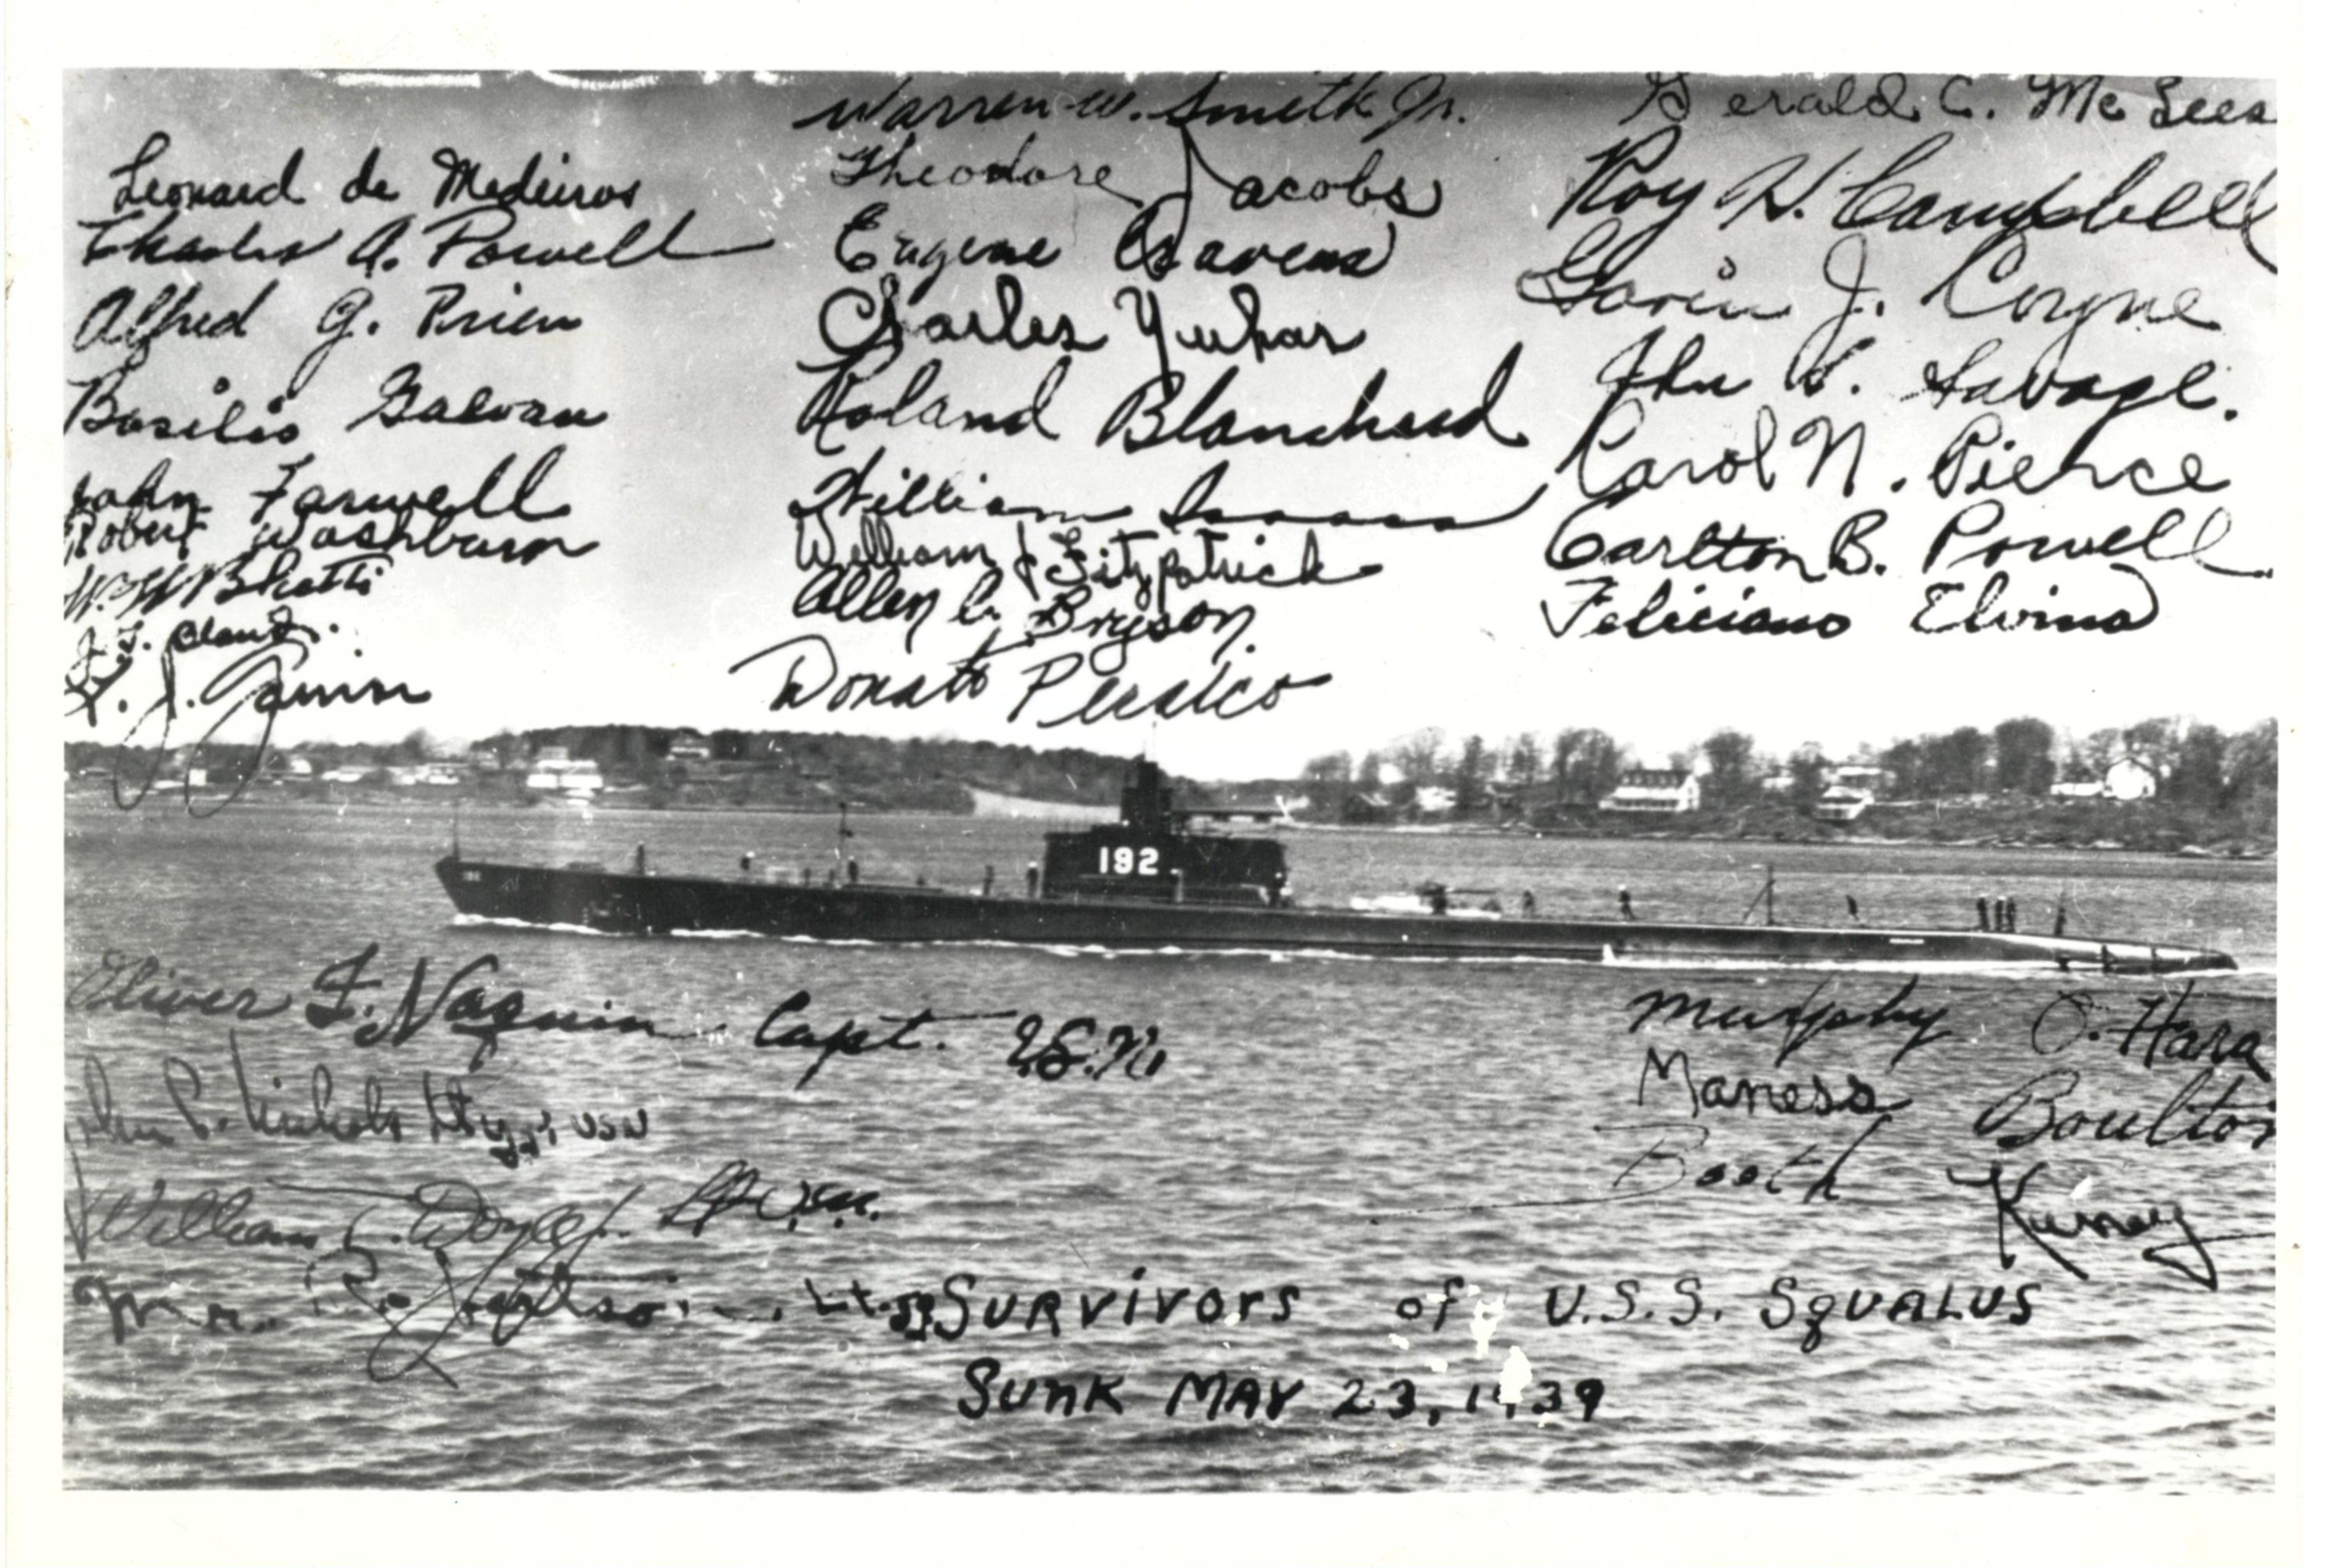 Leonard de Medeiros
Charles A. Powell
Alfred G. Prien
Basilio Galvan
John Farwell
Robert Washburn
J.
Warren W. Smith Jr.
Theodore Jacobs
Eugene Cravens
Charles Yuhas
Roland Blanchard
William Isaacs
William J Fitzpatrick
Allen C. Bryson
Donato Persico
Gerald C. McLees
Roy H. Campbell
Gavin J. Coyne
John S. Savage.
Carol N. Pierce
Carlton B. Powell
Feliciano Elvina
192
Oliver F. Naquin Capt. U.S.N.
Nichols USN
William T. Doyle Jr. Lt U.S.N.
Murphy O.Hara
Maness Boulton
Booth Kuney
SURVIVORS of U.S.S. SqUALUS
SUNK MAY 23, 1939